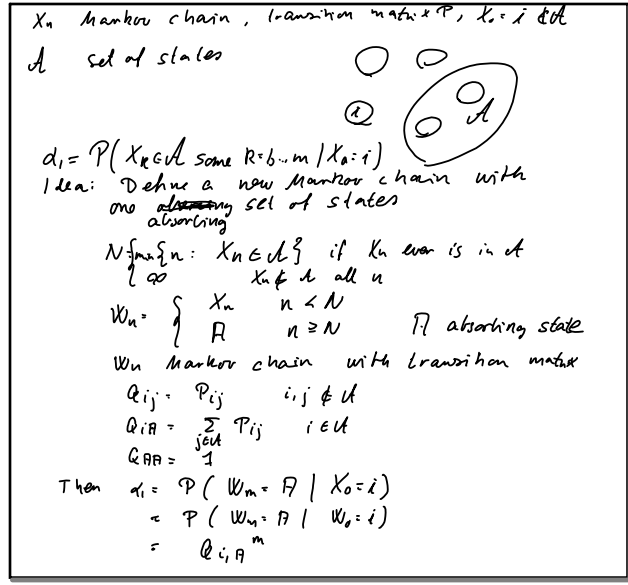 Xn Markov chain, transition matrix P, X₀ = i ∉ A
A set of states
i
A
α₁ = P( X_k ∈ A some k = 1...m | X₀ = i)
Idea: Define a new Markov chain with
one absorbing set of states
N = { min{n : Xn ∈ A} if Xn ever is in A
∞ Xn ∉ A all n
Wn = { Xn n < N
A n ≥ N A absorbing state
Wn Markov chain with transition matrix
Q_ij = P_ij i, j ∉ A
Q_iA = Σ_{j∈A} P_ij i ∈ A
Q_AA = 1
Then α₁ = P( W_m = A | X₀ = i)
= P( W_m = A | W₀ = i)
= Q_{i,A}^m